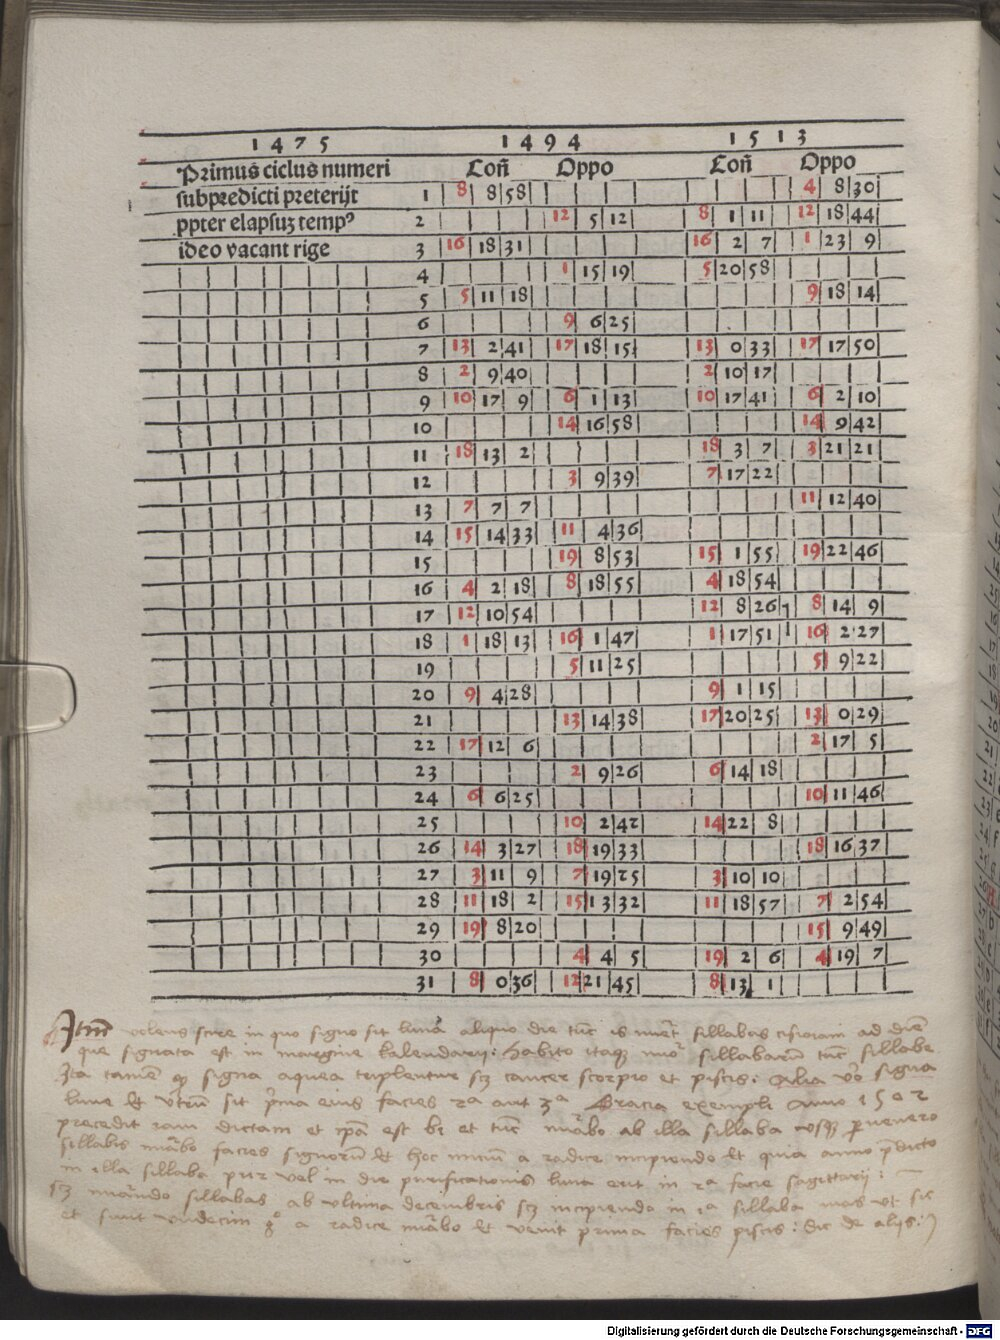 1475 1494 1513
Primus ciclus numeri Coñ Oppo Coñ Oppo
subpredicti preterijt 1 8 8 58 4 8 30
ppter elapsuz temp⁹ 2 12 5 12 8 1 11 12 18 44
ideo vacant rige 3 16 18 31 16 2 7 1 23 9
4 1 15 19 5 20 58
5 5 11 18 9 18 14
6 9 6 25
7 13 2 41 17 18 15 13 0 33 17 17 50
8 2 9 40 2 10 17
9 10 17 9 6 1 13 10 17 41 6 2 10
10 14 16 58 14 9 42
11 18 13 2 18 3 7 3 21 21
12 3 9 39 7 17 22
13 7 7 7 11 12 40
14 15 14 33 11 4 36
15 19 8 53 15 1 55 19 22 46
16 4 2 18 8 18 55 4 18 54
17 12 10 54 12 8 26 8 14 9
18 1 18 13 16 1 47 1 17 51 16 2 27
19 5 11 25 5 9 22
20 9 4 28 9 1 15
21 13 14 38 17 20 25 13 0 29
22 17 12 6 2 17 5
23 2 9 26 6 14 18
24 6 6 25 10 11 46
25 10 2 42 14 22 8
26 14 3 27 18 19 33 18 16 37
27 3 11 9 7 19 25 3 10 10
28 11 18 2 15 13 32 11 18 57 7 2 54
29 19 8 20 15 9 49
30 4 4 5 19 2 6 4 19 7
31 8 0 36 12 21 45 8 13 1
volens scire in quo signo sit luna aliquo die tūc is sillabas cisioiani ad diē
que signata est in margine kalendarii: habito itaqꝫ sillabarū tūc sillabe
Ita tamen signa aquea triplentur scꝫ cancer scorpio et piscis: Alia signa
lune et sit eius facies 2ᵃ aut 3ᵃ Gracia exempli Anno 1502
precedit dictam et est et tūc ab illa sillaba
sillabis facies signorū et hoc a radice incipiendo et quia anno
in illa sillaba pur vel in die purificationis luna erit in 2ᵃ facie sagittarii:
scꝫ sillabas ab ultima decembris scꝫ incipiendo in sillaba
et sunt undecim a radice et venit prima facies piscis: dic de aliis:
Digitalisierung gefördert durch die Deutsche Forschungsgemeinschaft - DFG